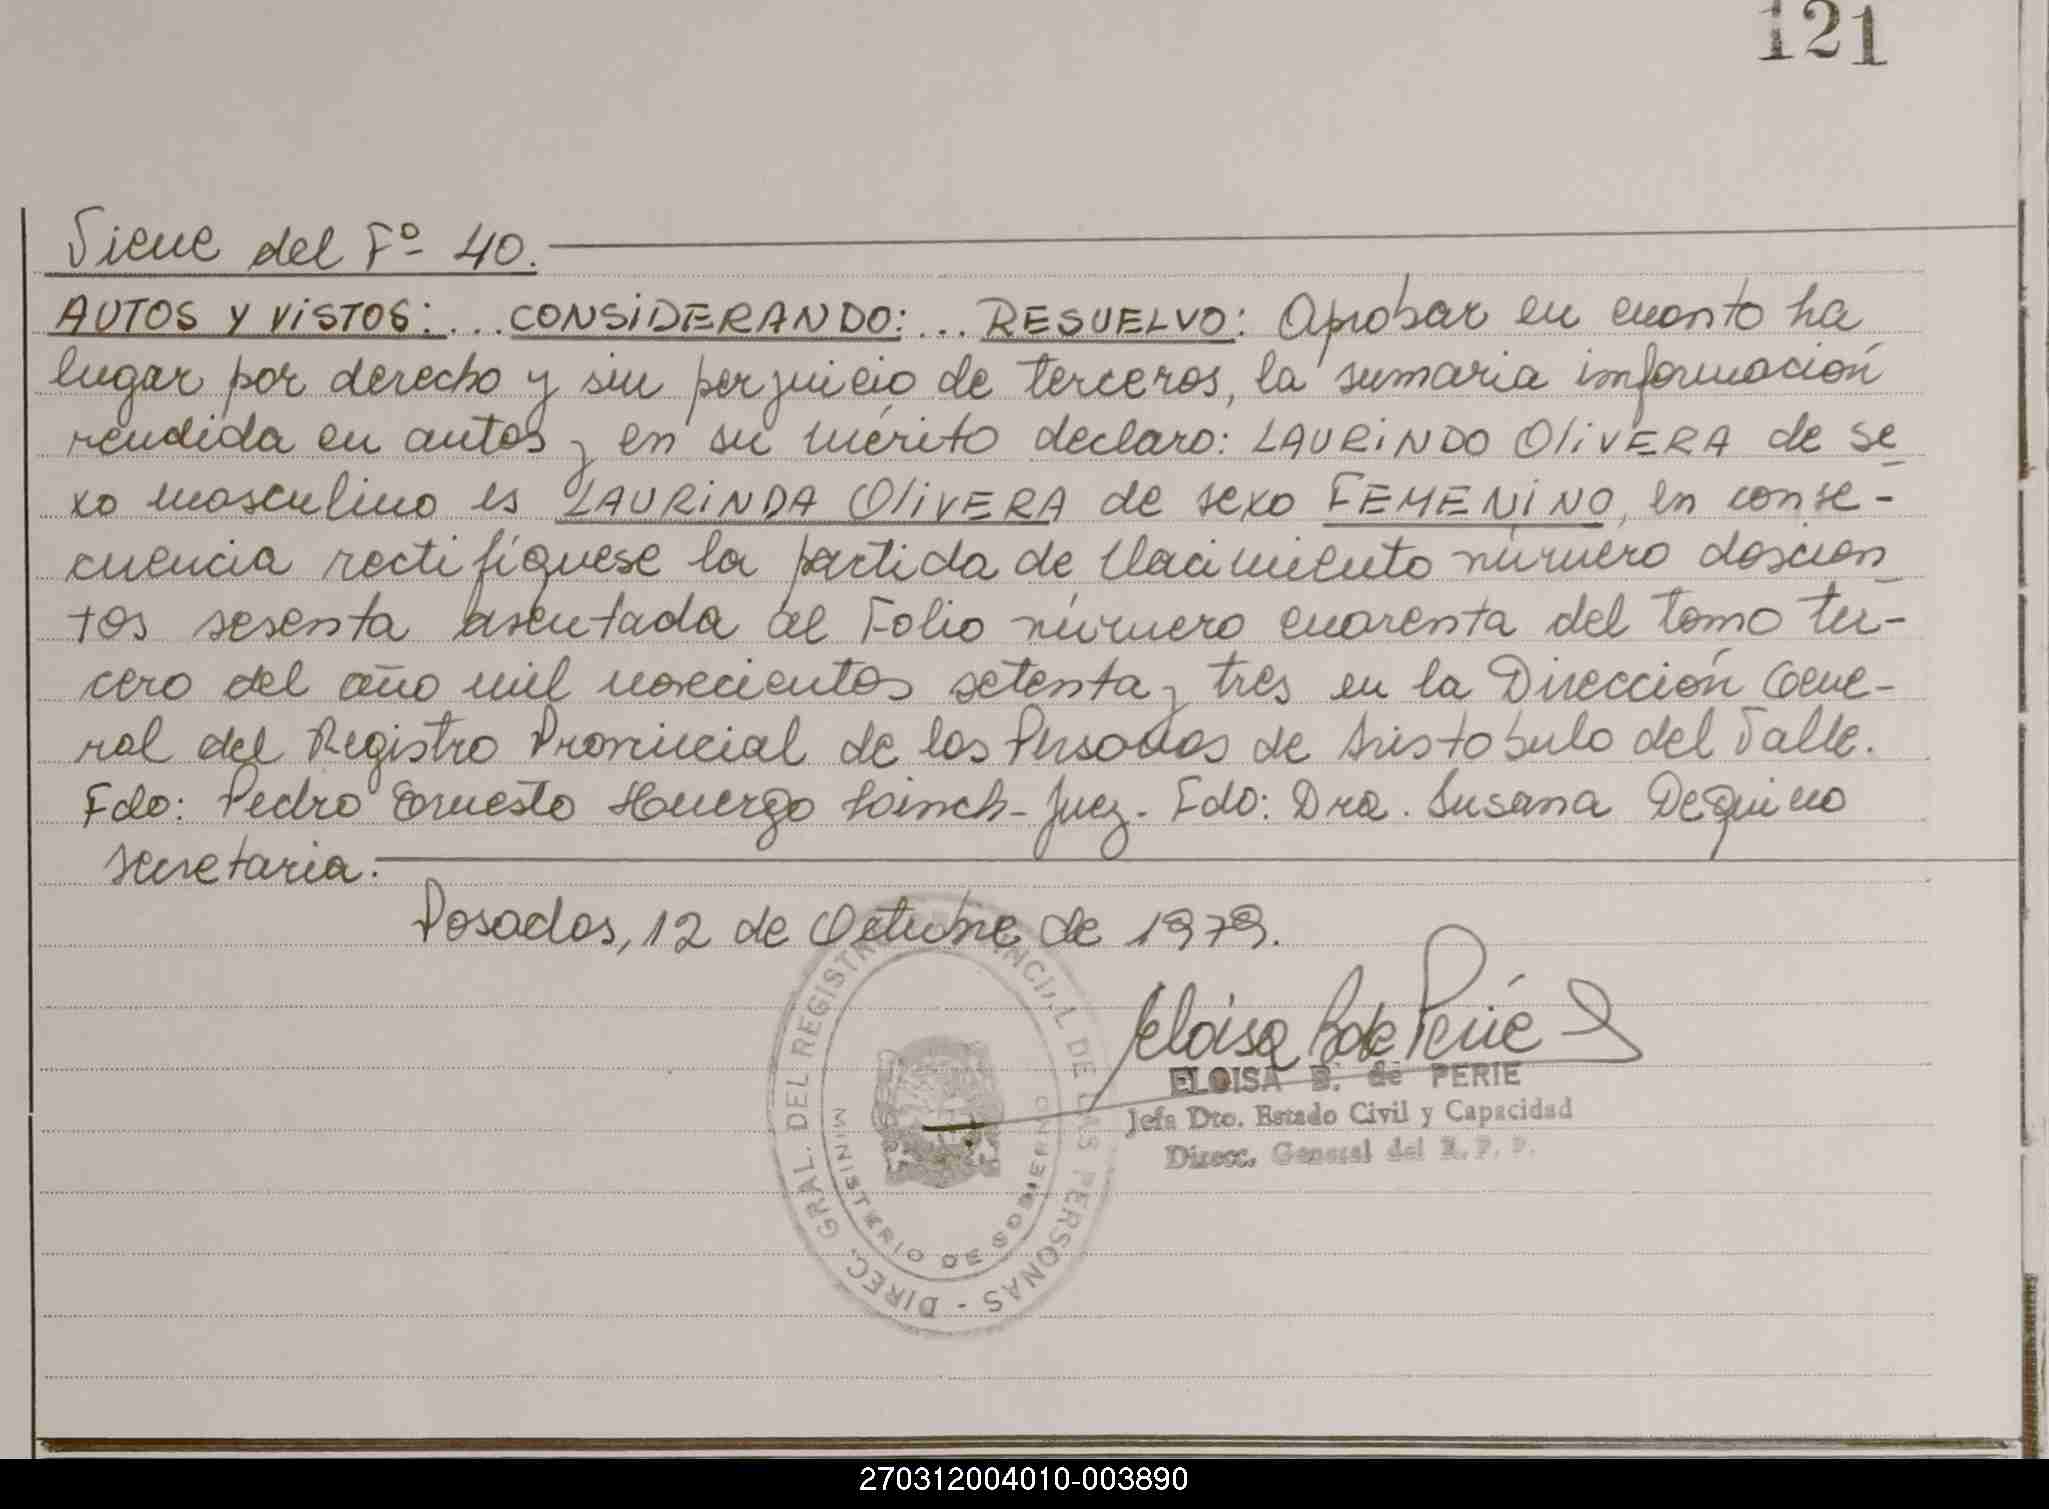 121
Viene del Fº 40.
AUTOS Y VISTOS:... CONSIDERANDO:... RESUELVO: Aprobar en cuanto ha
lugar por derecho y sin perjuicio de terceros, la sumaria información
rendida en autos y en su mérito declaro: LAURINDO OLIVERA de se
xo masculino es LAURINDA OLIVERA de sexo FEMENINO, en conse-
cuencia rectifíquese la partida de Nacimiento número doscien
tos sesenta asentada al Folio número cuarenta del tomo ter-
cero del año mil novecientos setenta y tres en la Dirección Gene-
ral del Registro Provincial de las Personas de Aristobulo del Valle.
Fdo: Pedro Ernesto Huergo - Juez. Fdo: Dra. Susana Dequino
secretaria.
Posadas, 12 de Octubre de 1979.
Eloisa B de Perié
ELOISA B. de PERIE
Jefa Dto. Estado Civil y Capacidad
Direcc. General del R. P. P.
DIREC. GRAL. DEL REGISTRO PROVINCIAL DE LAS PERSONAS -
MINISTERIO DE GOBIERNO
270312004010-003890